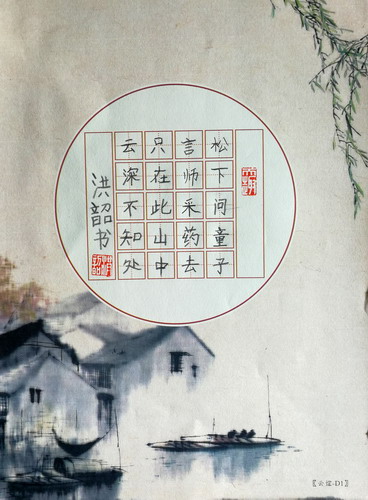 松下问童子
言师采药去
只在此山中
云深不知处
洪韶书